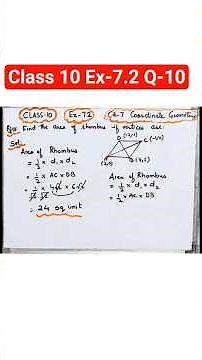 Class 10 Ex-7.2 Q-10
CLASS-10 Ex-7.2 Ch-7 Coordinate Geometry
Find the area of rhombus if vertices are:
Sol.
Area of Rhombus
= 1/2 × d₁ × d₂
= 1/2 × AC × DB
= 24 sq unit
Area of Rhombus
= 1/2 × d₁ × d₂
= 1/2 × AC × DB